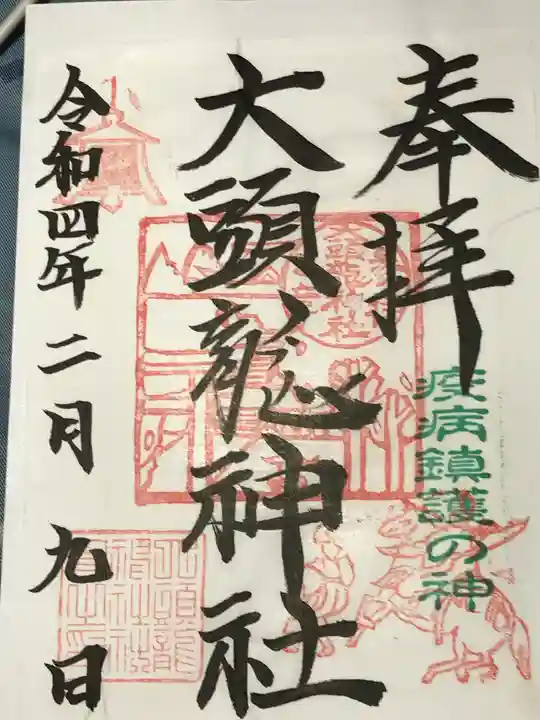 奉拝
疾病鎮護の神
大頭龍神社
令和四年二月九日